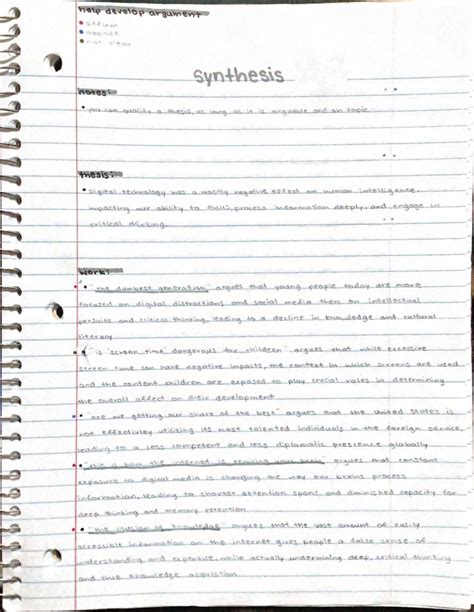 help develop argument
• affirm
• oppose
• not clear
synthesis
notes:
• you can qualify a thesis, as long as it is arguable and on topic
thesis:
• digital technology has a mostly negative effect on human intelligence,
impacting our ability to focus, process information deeply, and engage in
critical thinking.
work:
• "the dumbest generation" argues that young people today are more
focused on digital distractions and social media then on intellectual
persuits and critical thinking, leading to a decline in knowledge and cultural
literacy
• "is 'screen time' dangerous for children" argues that while excessive
screen time can have negative impacts, the context in which screens are used
and the content children are exposed to play crucial roles in determining
the overall effect on their development
• "are we getting our share of the best" argues that the united states is
not effectivley utilizing its most talented individuals in the foreign service,
leading to a less competent and less diplomatic prescence globally
• how the internet is reading your brain" argues that constant
exposure to digital media is changing the way our brains process
information, leading to shorter attention spans and diminished capacity for
deep thinking and memory retention
• "the illusion of knowledge" argues that the vast amount of easily
accessible information on the internet gives people a false sense of
understanding and expertise, while actually undermining deep, critical thinking
and true knowledge acquistion